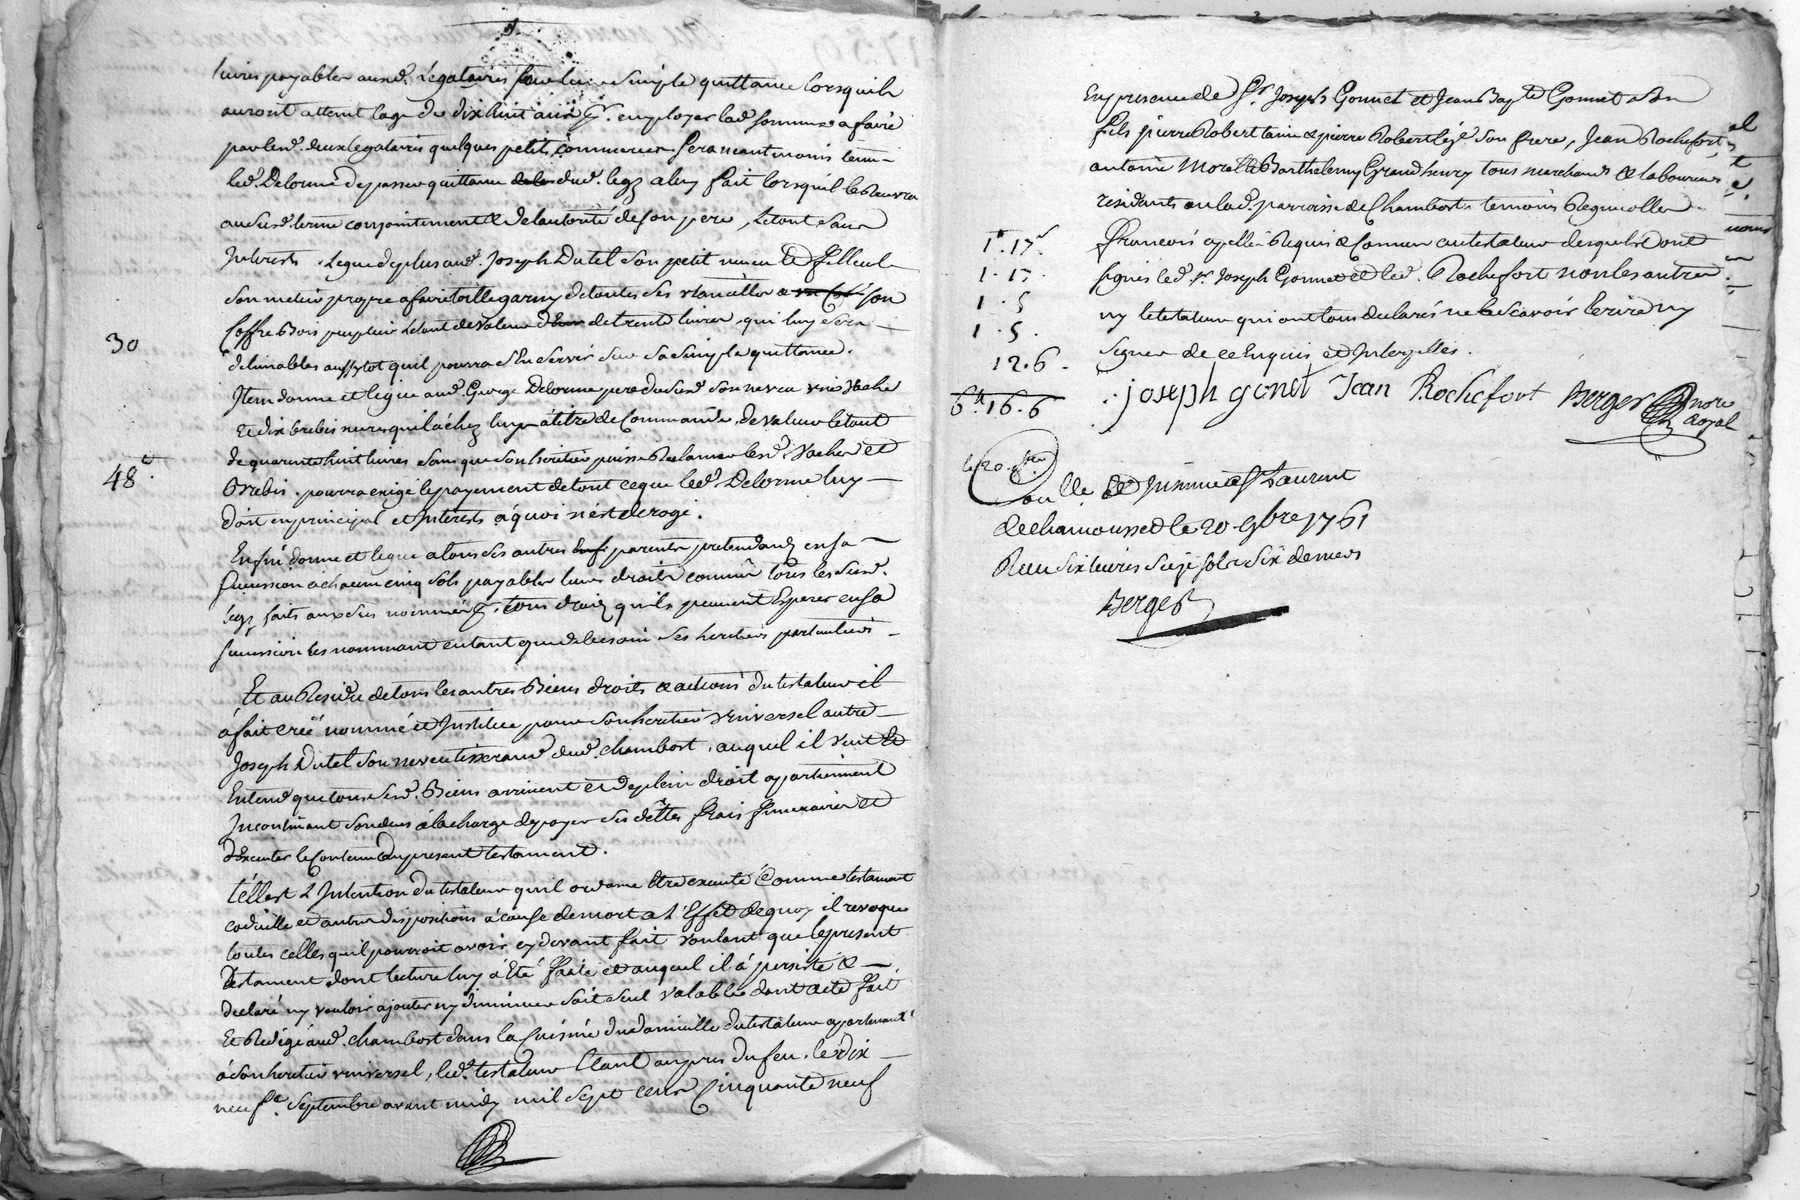 livres payables ausd. Legataires sous leur simple quittance lorsquils
auront atteint lage de dix huit ans p.r employer lad. somme a faire
par lesd. deux legataires quelques petits commerces sera neantmoins tenu
led. Delorme de passer quittance dud. legz a luy fait lorsquil le recevra
ausd. terme conjointement & de lautorité de son pere, Le tout sans
Interests. Legue de plus aud. Joseph Dutel son petit neveu et filleul
son metier propre a faire toille garny de toutes ses son
Coffre Bois Le tout de valeur de trente livres, qui luy sera
30
delivrables aussytot quil pourra s'en servir sur sa simple quittance.
Item donne et legue aud. George Delorme pere dud. son neveu une vache
et dix brebis meres quil a chez luy a titre de Commande, de valeur le tout
48lt.
de quarente huit livres sans que son heritier puisse Reclamer lesd. Vache et
Brebis. pourra exigé le payement de tout ce que led. Delorme luy
doit en principal et Interests a quoi n'est derogé.
Enfin donne et legue a tous ses autres parents pretendants en sa
succession a chacun cinq sols payables leurs droits comme tous les susd.
legz faits aux sus nommés p. tous droits qu'ils peuvent Esperer en sa
succession les nommant en tant que de besoin ses heritiers particuliers
Et au Residu de tous les autres Biens droits & actions du testateur il
à fait créé nommé et Institue pour son heritier universel autre
Joseph Dutel son neveu tisserand dud. chambost, auquel il veut et
Entend que tous sesd. Biens arrivent et de plein droit appartiennent
Incontinant son deces à la charge de payer ses dettes frais funeraires et
d'Executer le Contenu au present testament.
telle est L'Intention du testateur qu'il ordonne Etre executé Comme testament
codicille et autres dispositions à cause de mort a l'Effet de quoy il revoque
toutes celles quil pourroit avoir cy devant fait voulant que le present
Testament dont lecture luy à Eté faite et auquel il à persisté &
declaré ny vouloir ajouter ny diminuer soit seul valable dont acte fait
Et Redigé aud. chambost dans la Cuisine du domicille du testateur appartenant
à son heritier universel, led. testateur Etant aupres du feu. le dix
neuf.e Septembre avant midy mil sept cens Cinquante neuf
En presence de S.r Joseph Gonnet et Jean Bapte Gonnet son
fils pierre Robert laine & pierre Robert son frere, Jean Rochefort,
antoine Morel & Barthelemy Grandhenry tous marchands & laboureurs
residants en lad. parroisse de Chambost temoins
1lt.17s
francois apellés Requis & Connus au testateur desquels ont
1.17
signés led. Sr. Joseph Gonnet et led. Rochefort non les autres
1.5
ny le testateur qui ont tous declarés ne le scavoir Ecrire ny
1.5.
signer de ce Enquis et Interpellés.
12.6.
6lt.16.6
joseph gonet Jean Rochefort Berger nore Royal
le 20.
Con.lle et Insinué à St Laurent
de chamousset le 20 9bre 1761
Reçu six livres seize sols six deniers
Berger